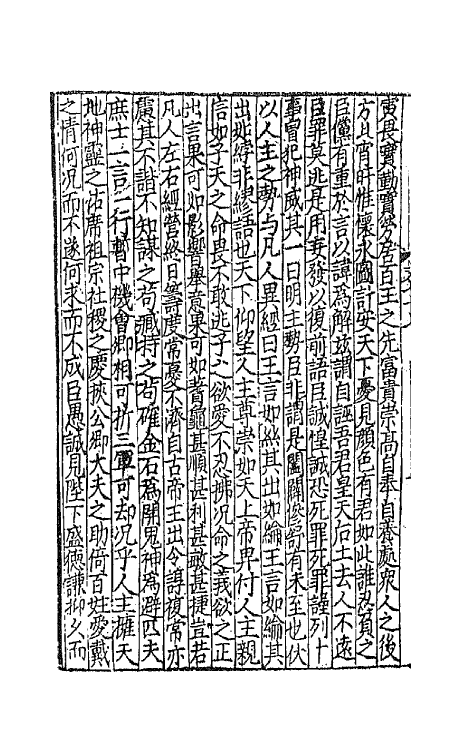 寅畏實勤實勞居百王之先富貴崇高自奉自養處衆人之後
方且宵旰惟懷永圖計安天下憂見顔色有君如此誰忍負之
臣儻有重於言以諱爲解茲謂自誣吾君皇天后土去人不遠
臣罪莫逃是用妄發以復前語臣誠惶誠恐死罪死罪謹列十
事冒犯神威其一曰明主勢臣非謂是闔闢慘舒有未至也伏
以人主之勢与凡人異經曰王言如絲其出如綸王言如綸其
出如綍非繆話也天下仰望人主尊崇如天上帝畀付人主親
信如子天之命畏不敢逃子之欲愛不忍拂況命之我欲之正
出言果可如影響舉意果可如蓍龜甚順甚利甚敏甚捷豈若
凡人左右經營終日籌度常憂不濟自古帝王出令謨復常亦
慮其不諧不知謀之苟臧持之苟確金石爲開鬼神爲避匹夫
庶士一言一行暫中機會卿相可折三軍可却況乎人主擁天
地神靈之佑席祖宗社稷之慶挾公卿大夫之助倚百姓愛戴
之情何況而不遂何求而不成臣愚誠見陛下盛德謙抑久而